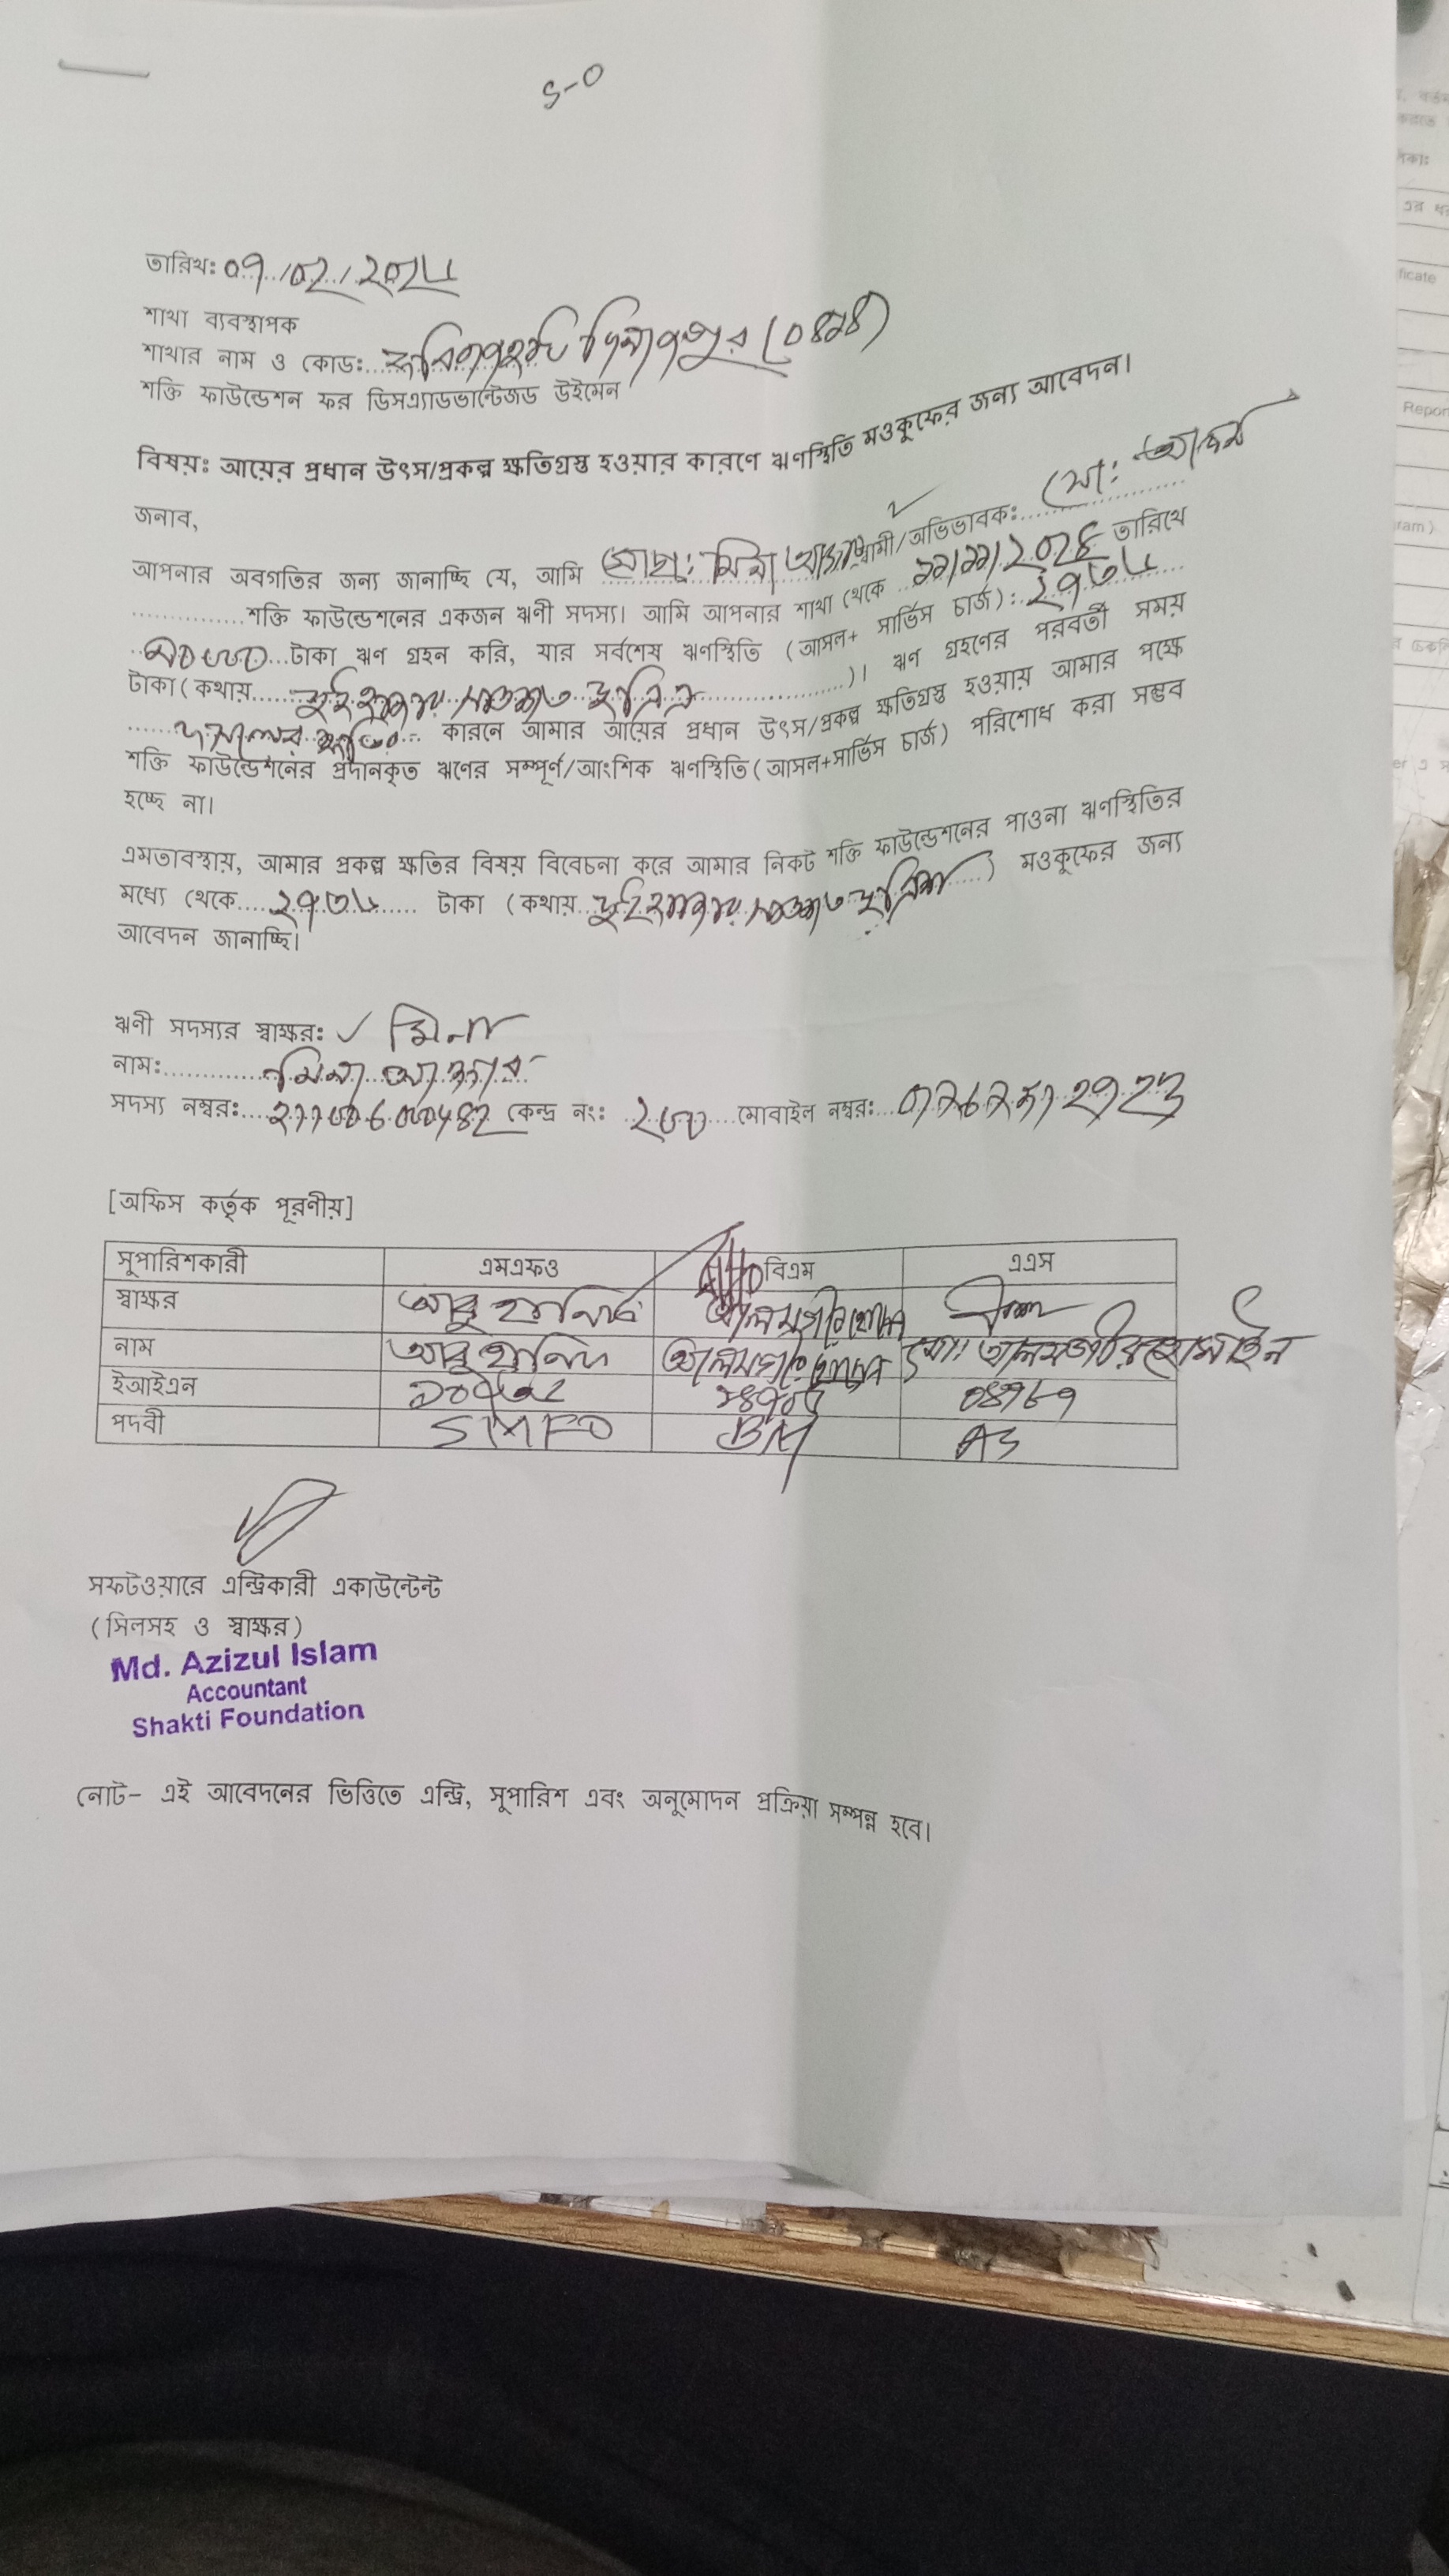 তারিখ: ০৭/০২/২০২৬
শাখা ব্যবস্থাপক
শাখার নাম ও কোড: দিনাজপুর (০৪৯৪)
শক্তি ফাউন্ডেশন ফর ডিসএ্যাডভান্টেজড উইমেন
বিষয়ঃ আয়ের প্রধান উৎস/প্রকল্প ক্ষতিগ্রস্ত হওয়ার কারণে ঋণস্থিতি মওকুফের জন্য আবেদন।
জনাব,
আপনার অবগতির জন্য জানাচ্ছি যে, আমি মোছা: মিনা আক্তার স্বামী/অভিভাবক: মো:
শক্তি ফাউন্ডেশনের একজন ঋণী সদস্য। আমি আপনার শাখা থেকে ১১/১১/২০২৪ তারিখে
টাকা ঋণ গ্রহন করি, যার সর্বশেষ ঋণস্থিতি (আসল+ সার্ভিস চার্জ): ২৭৩৬
টাকা (কথায় দুই হাজার সাতশত ছত্রিশ )। ঋণ গ্রহণের পরবর্তী সময়
কারনে আমার আয়ের প্রধান উৎস/প্রকল্প ক্ষতিগ্রস্ত হওয়ায় আমার পক্ষে
শক্তি ফাউন্ডেশনের প্রদানকৃত ঋণের সম্পূর্ণ/আংশিক ঋণস্থিতি (আসল+সার্ভিস চার্জ) পরিশোধ করা সম্ভব
হচ্ছে না।
এমতাবস্থায়, আমার প্রকল্প ক্ষতির বিষয় বিবেচনা করে আমার নিকট শক্তি ফাউন্ডেশনের পাওনা ঋণস্থিতির
মধ্যে থেকে ২৭৩৬ টাকা (কথায় দুই হাজার সাতশত ছত্রিশ ) মওকুফের জন্য
আবেদন জানাচ্ছি।
ঋণী সদস্যর স্বাক্ষর: মিনা
নাম: মিনা আক্তার
সদস্য নম্বর: কেন্দ্র নং: ২৬০ মোবাইল নম্বর:
[অফিস কর্তৃক পূরণীয়]
সুপারিশকারী এমএফও বিএম এএস
স্বাক্ষর আবু হানিফ
নাম আবু হানিফ আলমগীর হোসেন মোঃ আলমগীর হোসাইন
ইআইএন
পদবী SMFO BM AS
সফটওয়ারে এন্ট্রিকারী একাউন্টেন্ট
(সিলসহ ও স্বাক্ষর)
Md. Azizul Islam
Accountant
Shakti Foundation
নোট- এই আবেদনের ভিত্তিতে এন্ট্রি, সুপারিশ এবং অনুমোদন প্রক্রিয়া সম্পন্ন হবে।